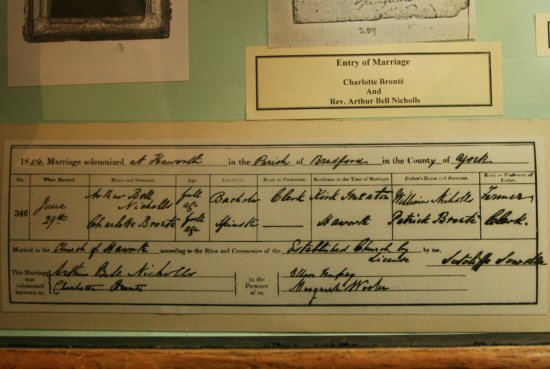 209
Entry of Marriage
Charlotte Brontë
And
Rev. Arthur Bell Nicholls
1854. Marriage solemnized at Haworth in the Parish of Bradford in the County of York
No. When Married. Name and Surname. Age. Condition. Rank or Profession. Residence at the Time of Marriage. Father's Name and Surname. Rank or Profession of Father.
346 June 29th Arthur Bell Nicholls full age Bachelor Clerk Kirk Smeaton William Nicholls Farmer
Charlotte Brontë full age Spinster Haworth Patrick Brontë Clerk.
Married in the Church of Haworth according to the Rites and Ceremonies of the Established Church by Licence by me, Sutcliffe Sowden
This Marriage was solemnized between us, Arthur Bell Nicholls
Charlotte Brontë
in the Presence of us,
Margaret Wooler